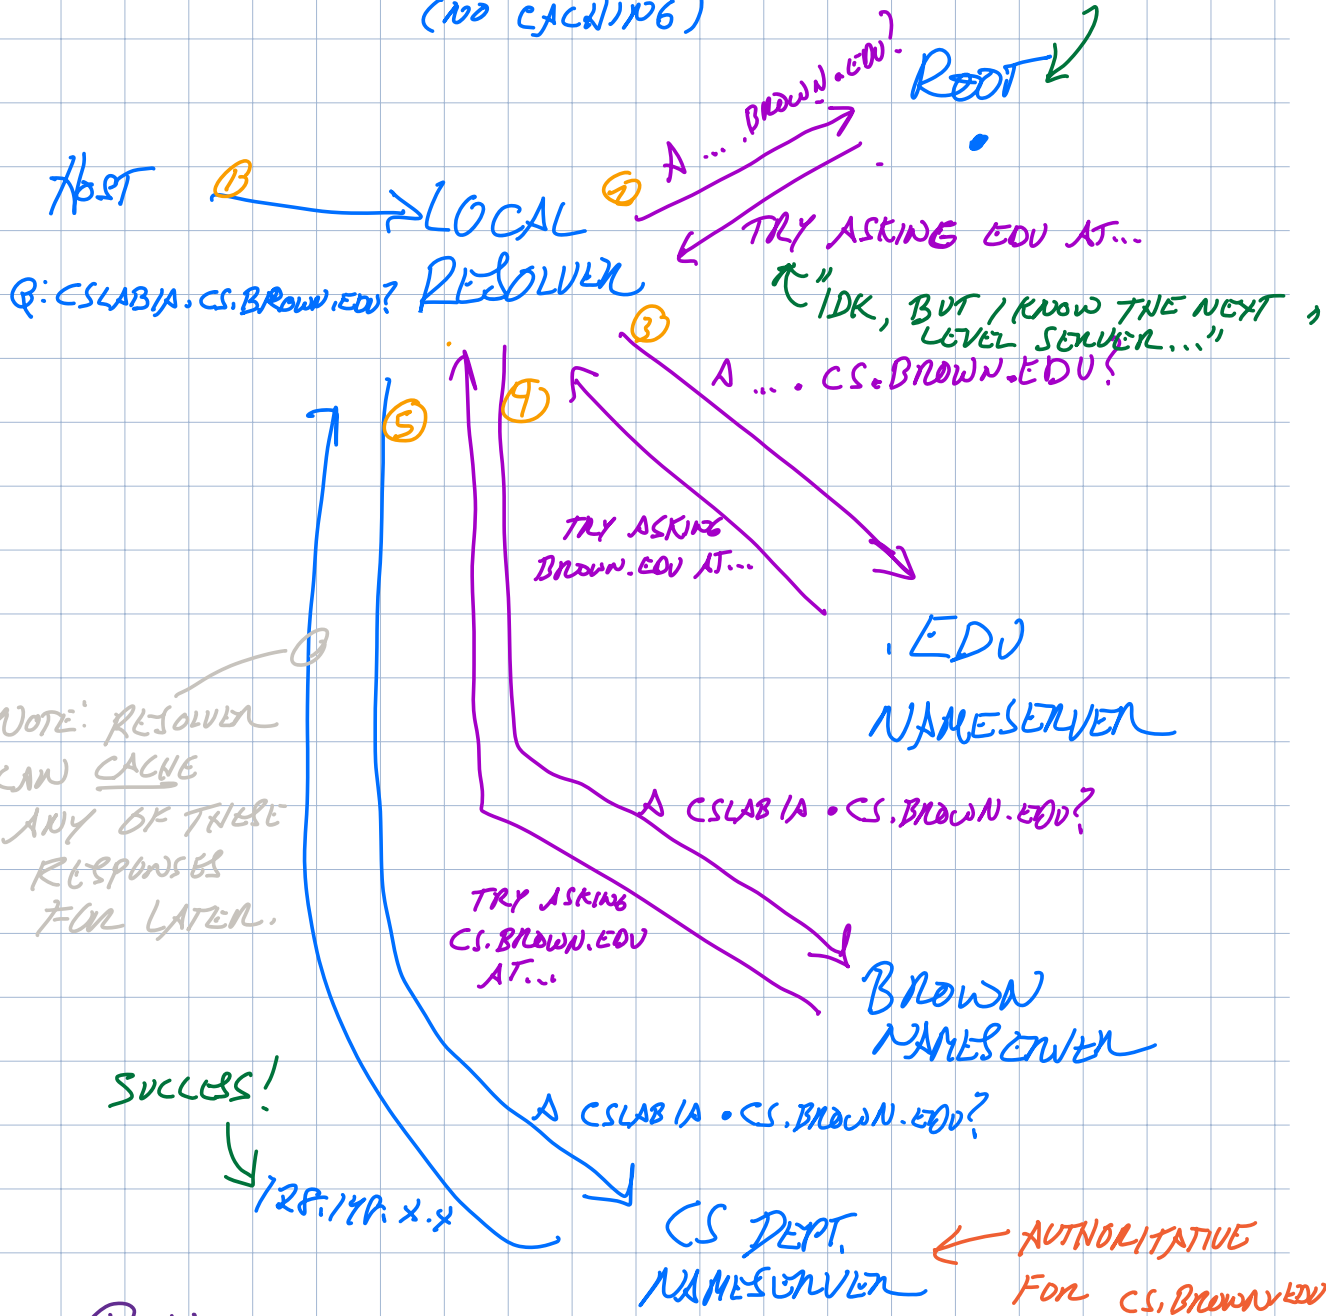 (NO CACHING)
ROOT
A .... BROWN.EDU?
.
HOST
1
LOCAL
RESOLVER
2
TRY ASKING EDU AT...
Q: CSLAB1A.CS.BROWN.EDU?
"IDK, BUT I KNOW THE NEXT
LEVEL SERVER..."
3
A .... CS.BROWN.EDU?
4
5
TRY ASKING
BROWN.EDU AT...
.EDU
NAMESERVER
NOTE: RESOLVER
CAN CACHE
ANY OF THESE
RESPONSES
FOR LATER.
A CSLAB1A.CS.BROWN.EDU?
TRY ASKING
CS.BROWN.EDU
AT...
BROWN
NAMESERVER
SUCCESS!
A CSLAB1A.CS.BROWN.EDU?
128.148.X.X
CS DEPT.
NAMESERVER
AUTHORITATIVE
FOR CS.BROWN.EDU